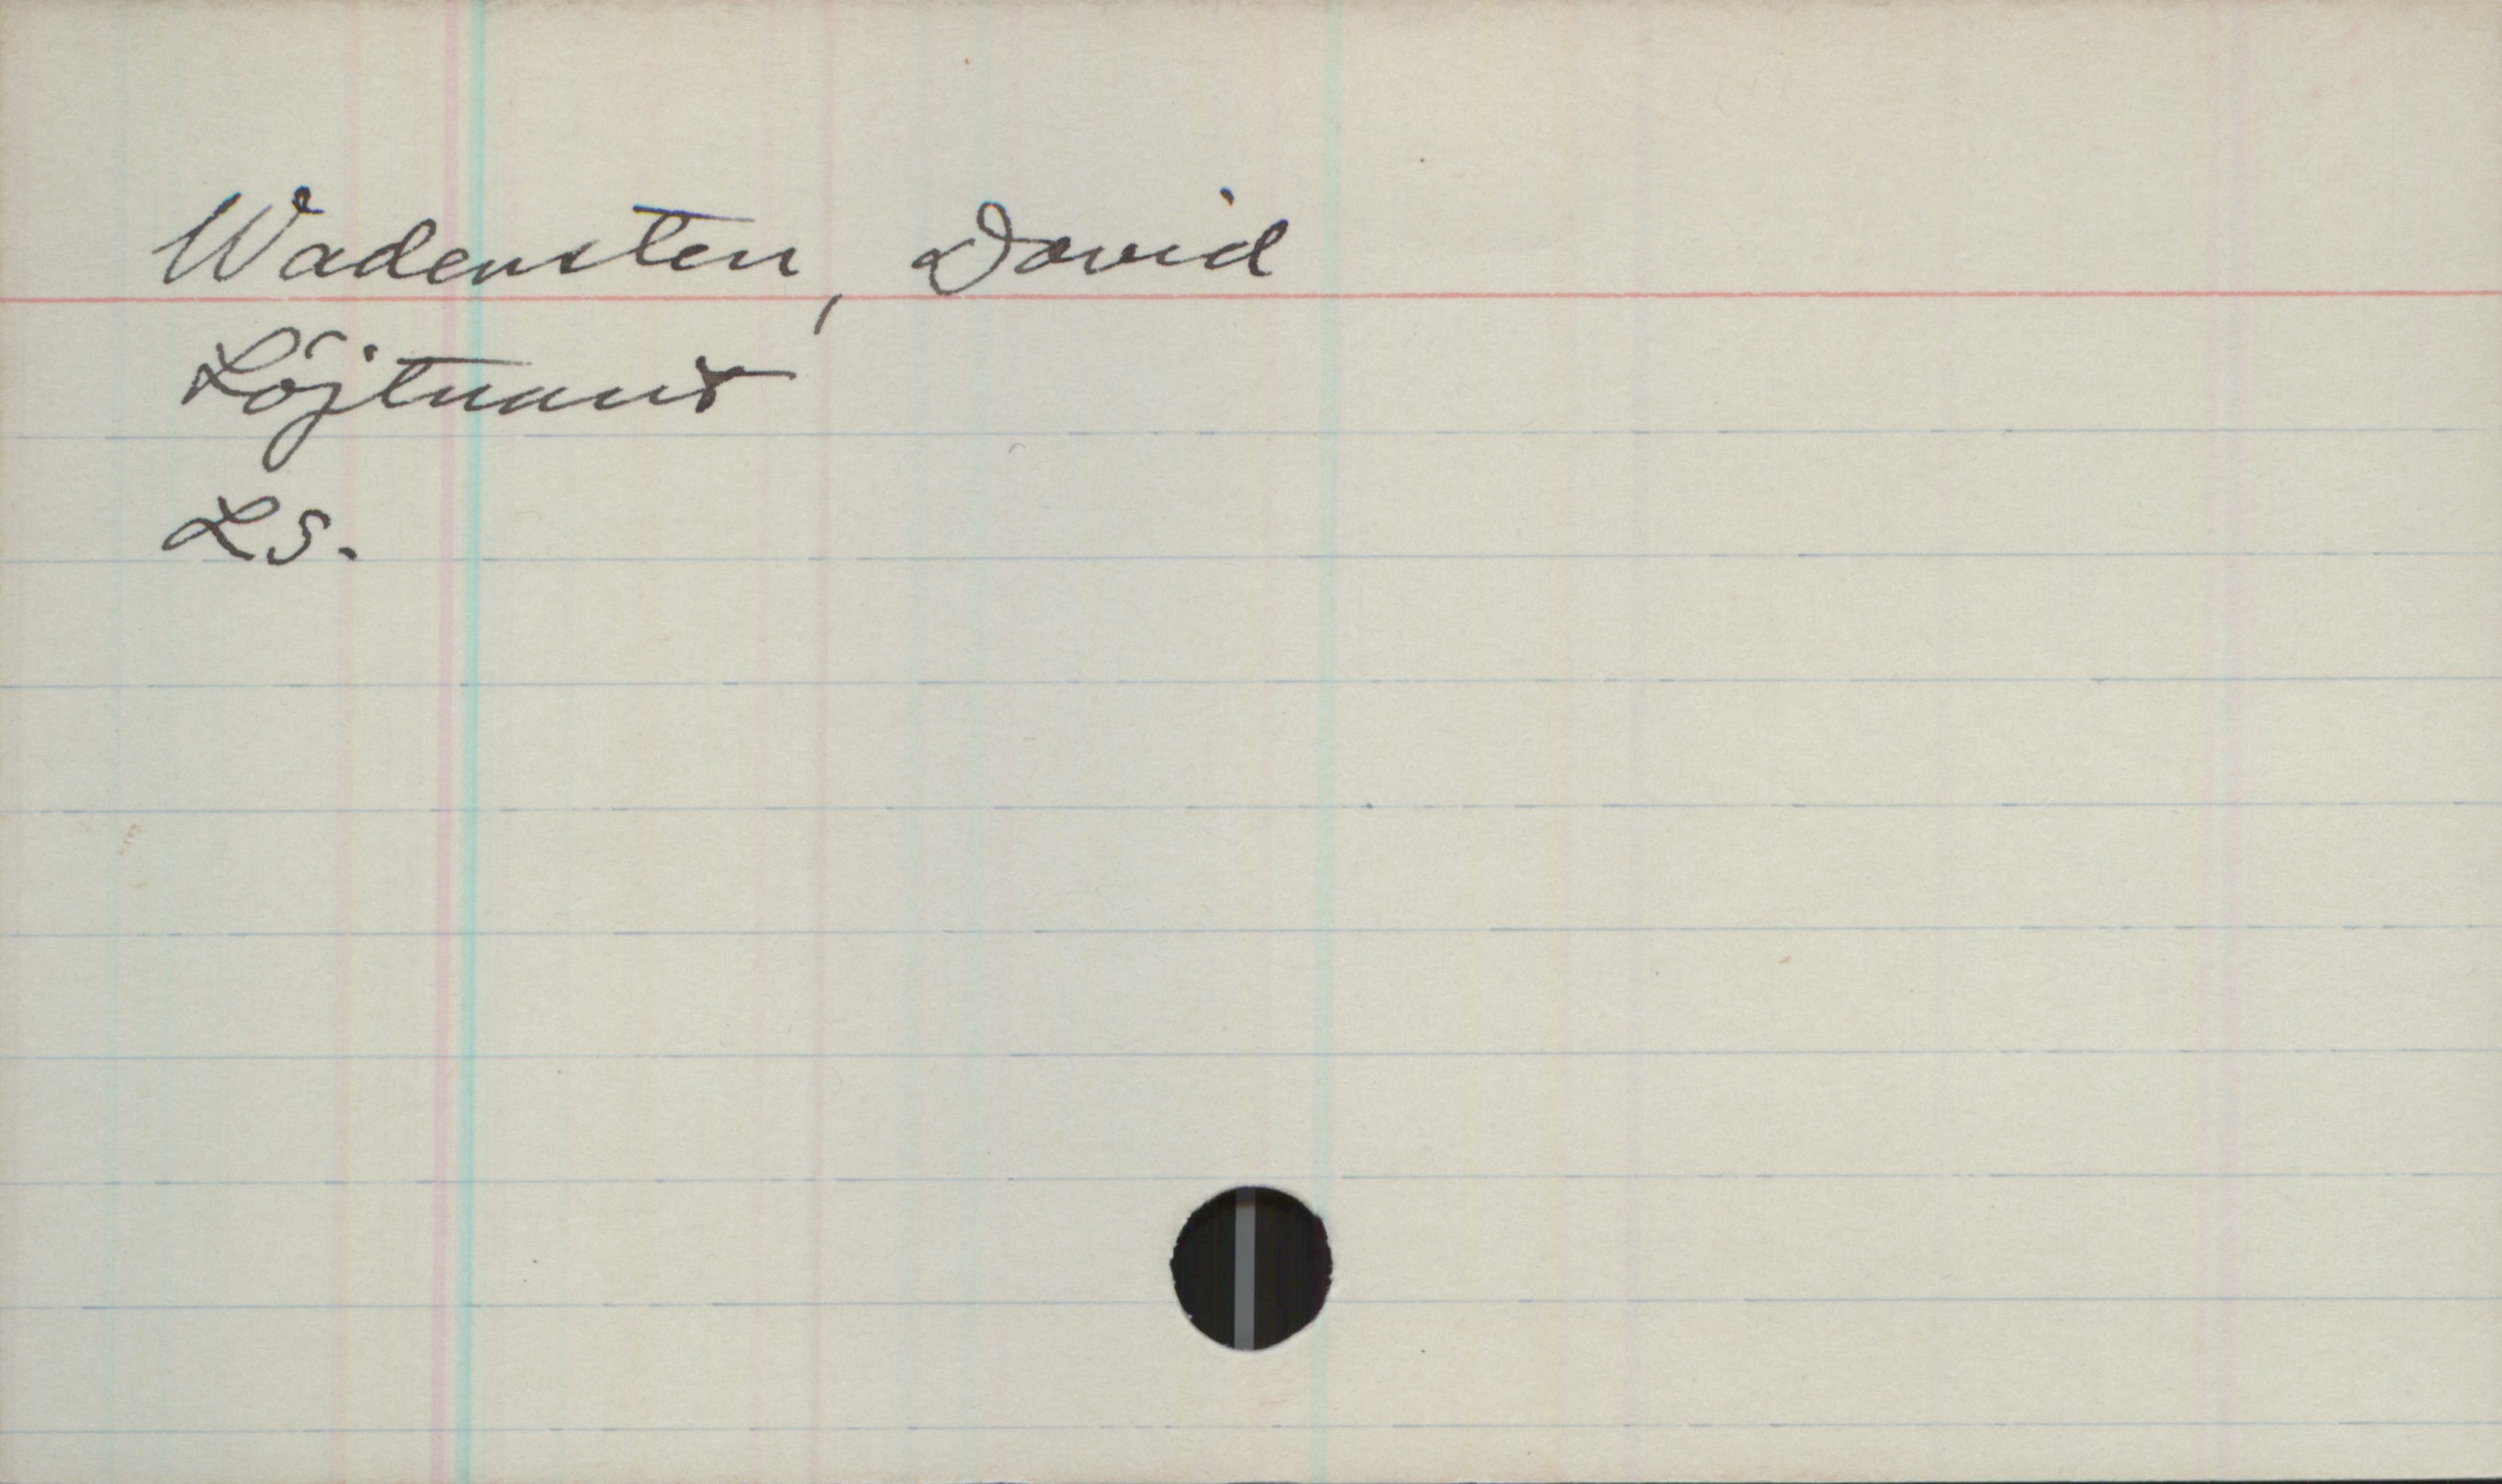 Wadensten, David
Löjtnant
Ls.